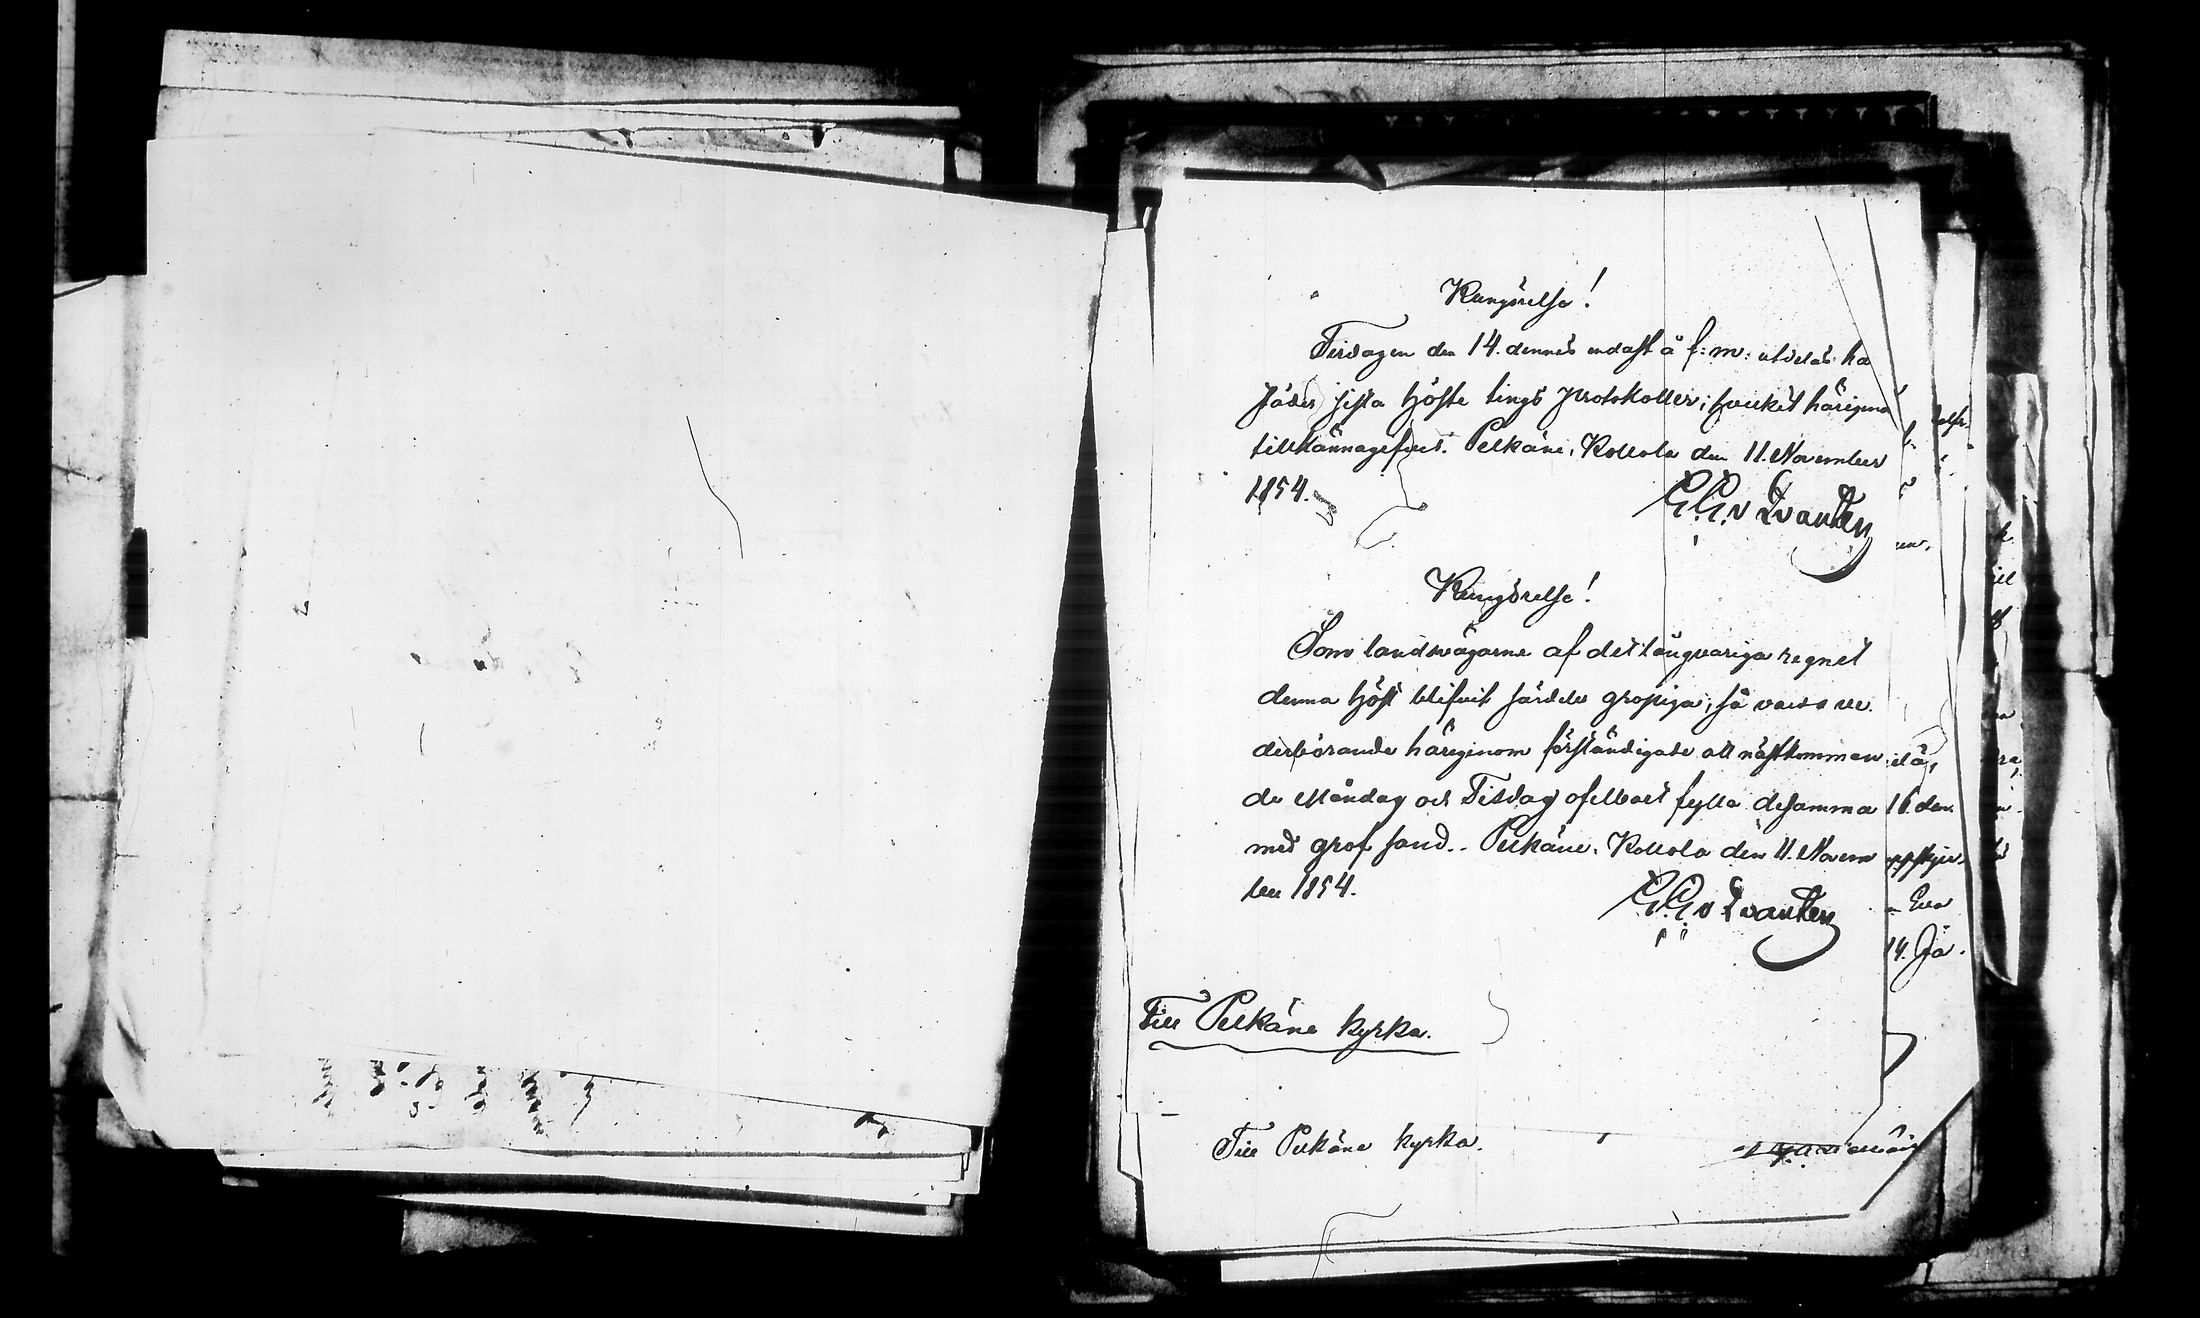 Kungörelse!
Tisdagen den 14. dennes endast å f:m: utdelas här
städes sista Höste tings Protokoller; hvilket härigenom
tillkännagifves. Pelkäne, Kollola den 11. November
1854.
G.G.v Qvanten
Kungörelse!
Som landsvägarne af det långvariga regnet
denna Höst blifvit särdeles gropiga, så varda ve.
derbörande härigenom förständigade att nästkomman
de Måndag och Tisdag ofelbart fylla desamma
med grof sand.. Pelkäne, Kollola den 11. Novem
ber 1854.
v Qvanten
14.
Till Pelkäne Kyrka.
Till Pelkäne Kyrka.